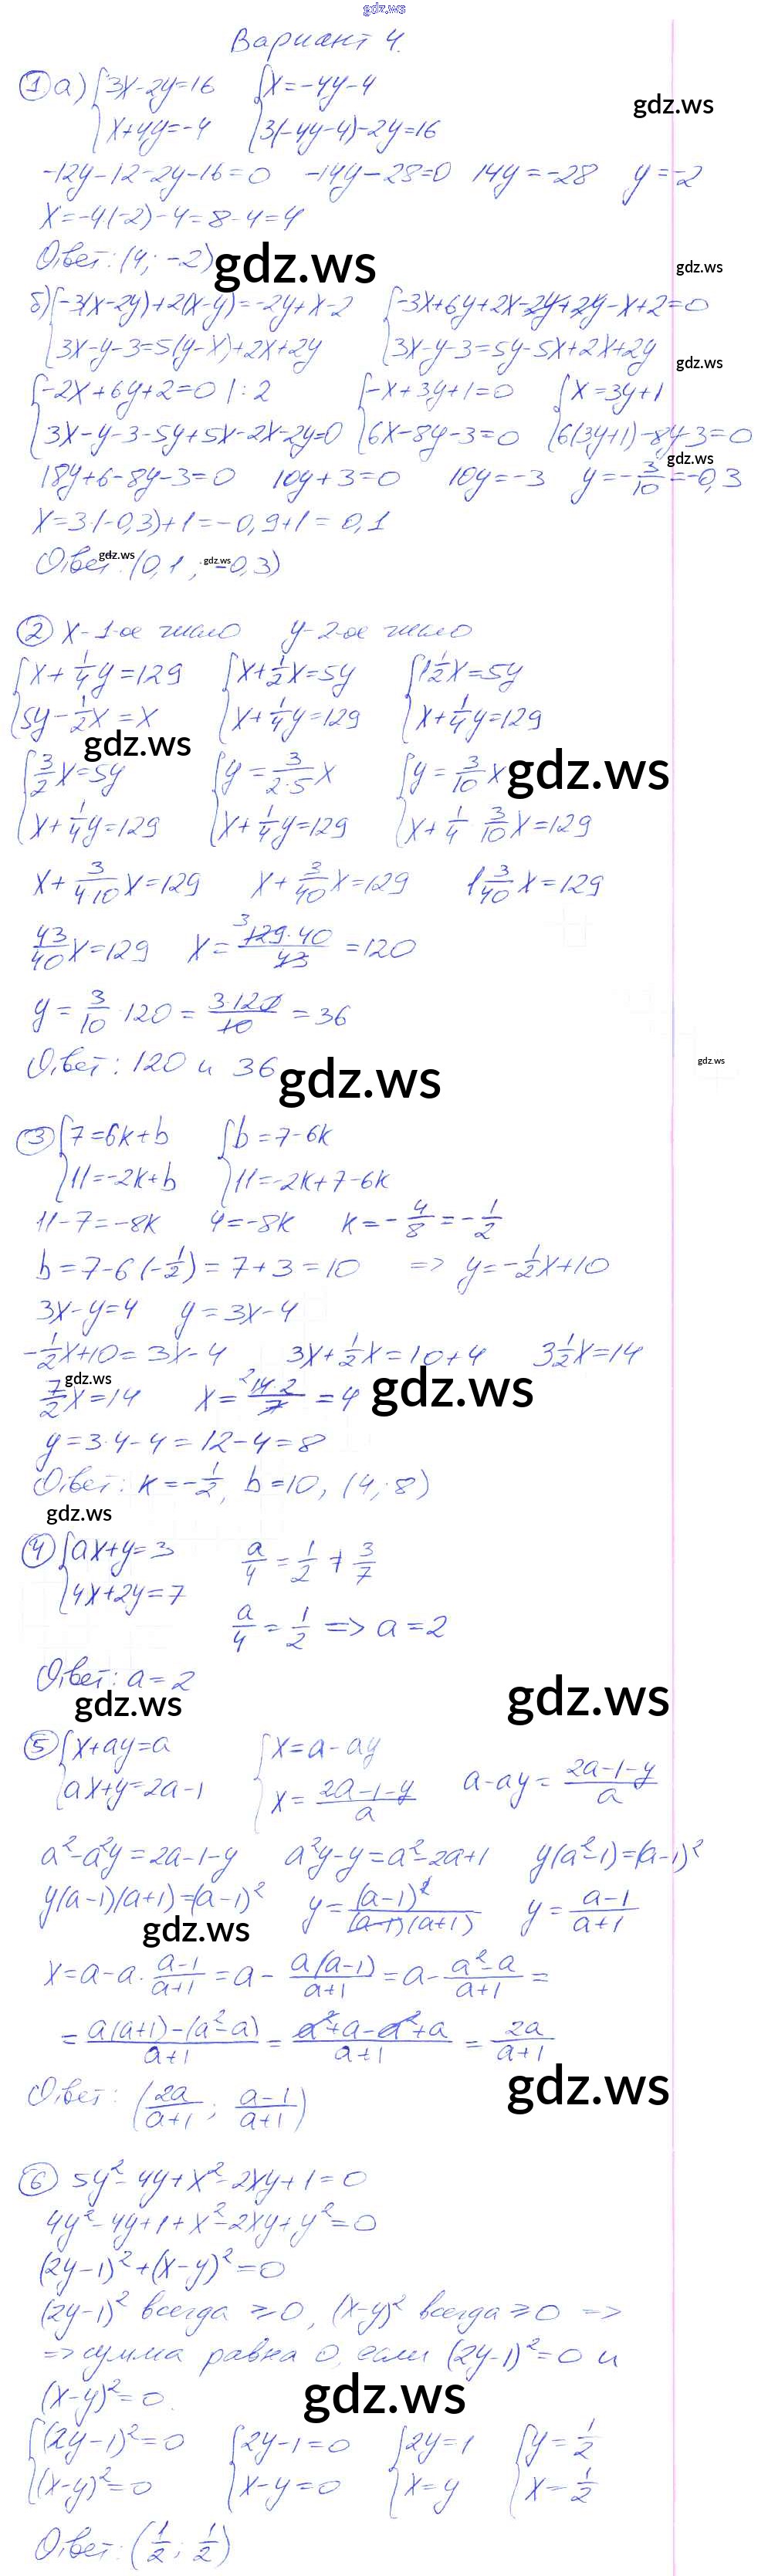 gdz.ws
Вариант 4.
① а) {3x-2y=16 {x=-4y-4
{x+4y=-4 {3(-4y-4)-2y=16
gdz.ws
-12y-12-2y-16=0 -14y-28=0 14y=-28 y=-2
x=-4(-2)-4=8-4=4
Ответ: (4; -2)
gdz.ws
gdz.ws
б) {-3(x-2y)+2(x-y)=-2y+x-2 {-3x+6y+2x-2y+2y-x+2=0
{3x-y-3=5(y-x)+2x+2y {3x-y-3=5y-5x+2x+2y
gdz.ws
{-2x+6y+2=0 |:2 {-x+3y+1=0 {x=3y+1
{3x-y-3-5y+5x-2x-2y=0 {6x-8y-3=0 {6(3y+1)-8y-3=0
gdz.ws
18y+6-8y-3=0 10y+3=0 10y=-3 y=-3/10=-0,3
x=3·(-0,3)+1=-0,9+1=0,1
Ответ: (0,1; -0,3)
gdz.ws gdz.ws
② x-1-ое число y-2-ое число
{x+1/4y=129 {x+1/2x=5y {1 1/2x=5y
{5y-1/2x=x {x+1/4y=129 {x+1/4y=129
gdz.ws
{3/2x=5y {y=3/(2·5)x {y=3/10x
gdz.ws
{x+1/4y=129 {x+1/4y=129 {x+1/4 3/10x=129
x+3/(4·10)x=129 x+3/40x=129 1 3/40x=129
43/40x=129 x=³129·40/43=120
y=3/10·120=3·120/10=36
Ответ: 120 и 36
gdz.ws
gdz.ws
③ {7=6k+b {b=7-6k
{11=-2k+b {11=-2k+7-6k
11-7=-8k 4=-8k k=-4/8=-1/2
b=7-6(-1/2)=7+3=10 => y=-1/2x+10
3x-y=4 y=3x-4
-1/2x+10=3x-4 3x+1/2x=10+4 3 1/2x=14
gdz.ws
7/2x=14 x=²14·2/7=4
gdz.ws
y=3·4-4=12-4=8
Ответ: k=-1/2, b=10, (4; 8)
gdz.ws
④ {ax+y=3 a/4=1/2≠3/7
{4x+2y=7
a/4=1/2 => a=2
Ответ: a=2
gdz.ws
gdz.ws
⑤ {x+ay=a {x=a-ay
{ax+y=2a-1 {x=(2a-1-y)/a a-ay=(2a-1-y)/a
a²-a²y=2a-1-y a²y-y=a²-2a+1 y(a²-1)=(a-1)²
y(a-1)(a+1)=(a-1)² y=(a-1)²/((a-1)(a+1)) y=(a-1)/(a+1)
gdz.ws
x=a-a·(a-1)/(a+1)=a-a(a-1)/(a+1)=a-(a²-a)/(a+1)=
=(a(a+1)-(a²-a))/(a+1)=(a²+a-a²+a)/(a+1)=2a/(a+1)
gdz.ws
Ответ: (2a/(a+1); (a-1)/(a+1))
⑥ 5y²-4y+x²-2xy+1=0
4y²-4y+1+x²-2xy+y²=0
(2y-1)²+(x-y)²=0
(2y-1)² всегда ≥0, (x-y)² всегда ≥0 =>
=> сумма равна 0, если (2y-1)²=0 и
(x-y)²=0.
gdz.ws
{(2y-1)²=0 {2y-1=0 {2y=1 {y=1/2
{(x-y)²=0 {x-y=0 {x=y {x=1/2
Ответ: (1/2; 1/2)